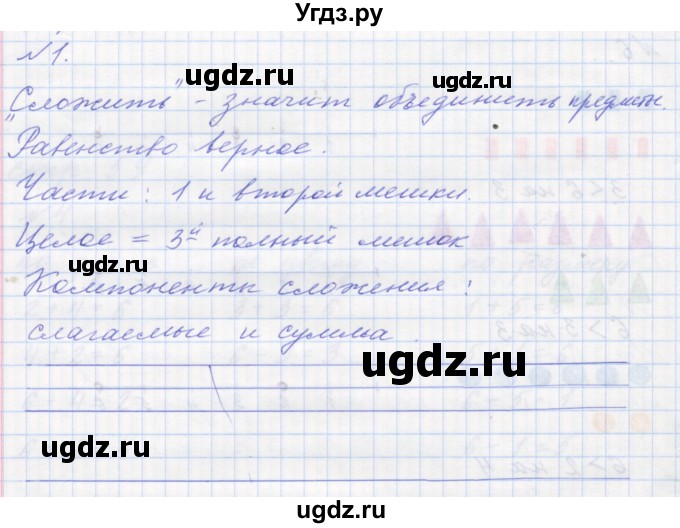 Угдз.ру
№1.
ugdz.ru ugdz.ru
„Сложить" - значит объединить предметы.
Равенство верное.
Части: 1 и второй мешки.
ugdz.ru
Целое = 3й полный мешок
ugdz.ru
Компоненты сложения:
слагаемые и сумма.
ugdz.ru
ugdz.ru
ugdz.ru
ugdz.ru
Угдз.ру